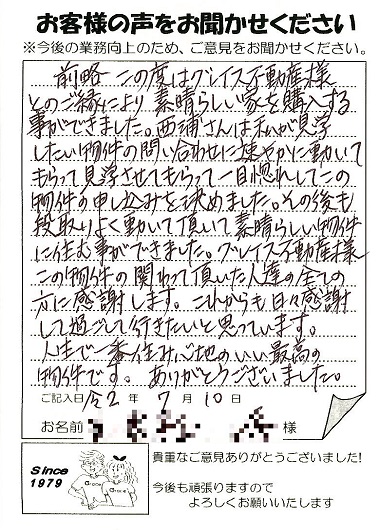 お客様の声をお聞かせください
※今後の業務向上のため、ご意見をお聞かせください。
前略 この度はグレイス不動産様
とのご縁により 素晴らしい家を購入する
事ができました。西浦さんは私が見学
したい物件の問い合わせに速やかに動いて
もらって見学させてもらって一目惚れしてこの
物件の申し込みを決めました。その後も
段取りよく動いて頂いて素晴らしい物件
に住む事ができました。グレイス不動産様
この物件の関わって頂いた人達の全ての
方に感謝します。これからも日々感謝
して過ごして行きたいと思っています。
人生で一番住み心地のいい最高の
物件です。ありがとうございました。
ご記入日 令2年 7月10日
お名前 様
Since
1979
貴重なご意見ありがとうございました!
今後も頑張りますので
よろしくお願いいたします